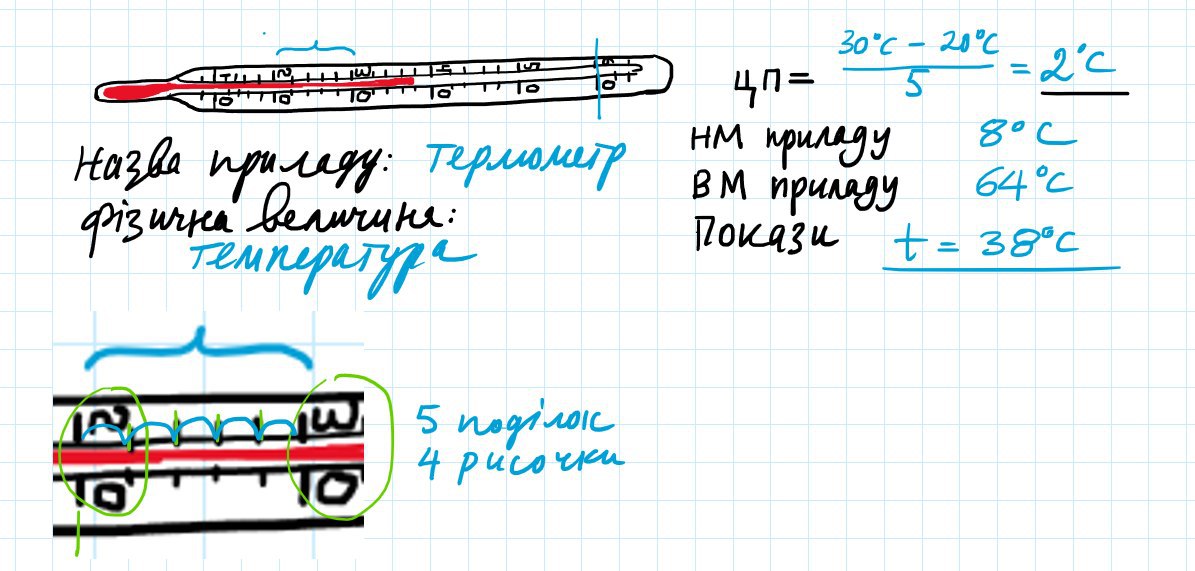 1 2 3 4 5 6
0 0 0 0 0 0
Назва приладу: термометр
фізична величина:
температура
ЦП = 30°C - 20°C / 5 = 2°C
НМ приладу 8°C
ВМ приладу 64°C
Покази t = 38°C
2 3
0 0
5 поділок
4 рисочки